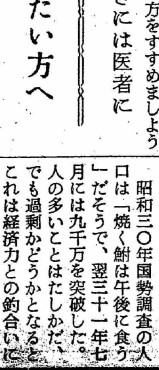 方をすすめましよう
きには医者に
たい方へ
昭和三〇年国勢調査の人
口は「焼く鮒は午後に食う
」だそうで、翌三十一年七
月には九千万を突破した。
人の多いことはたしかだ、
でも過剰かどうかとなると
これは経済力との釣合いに